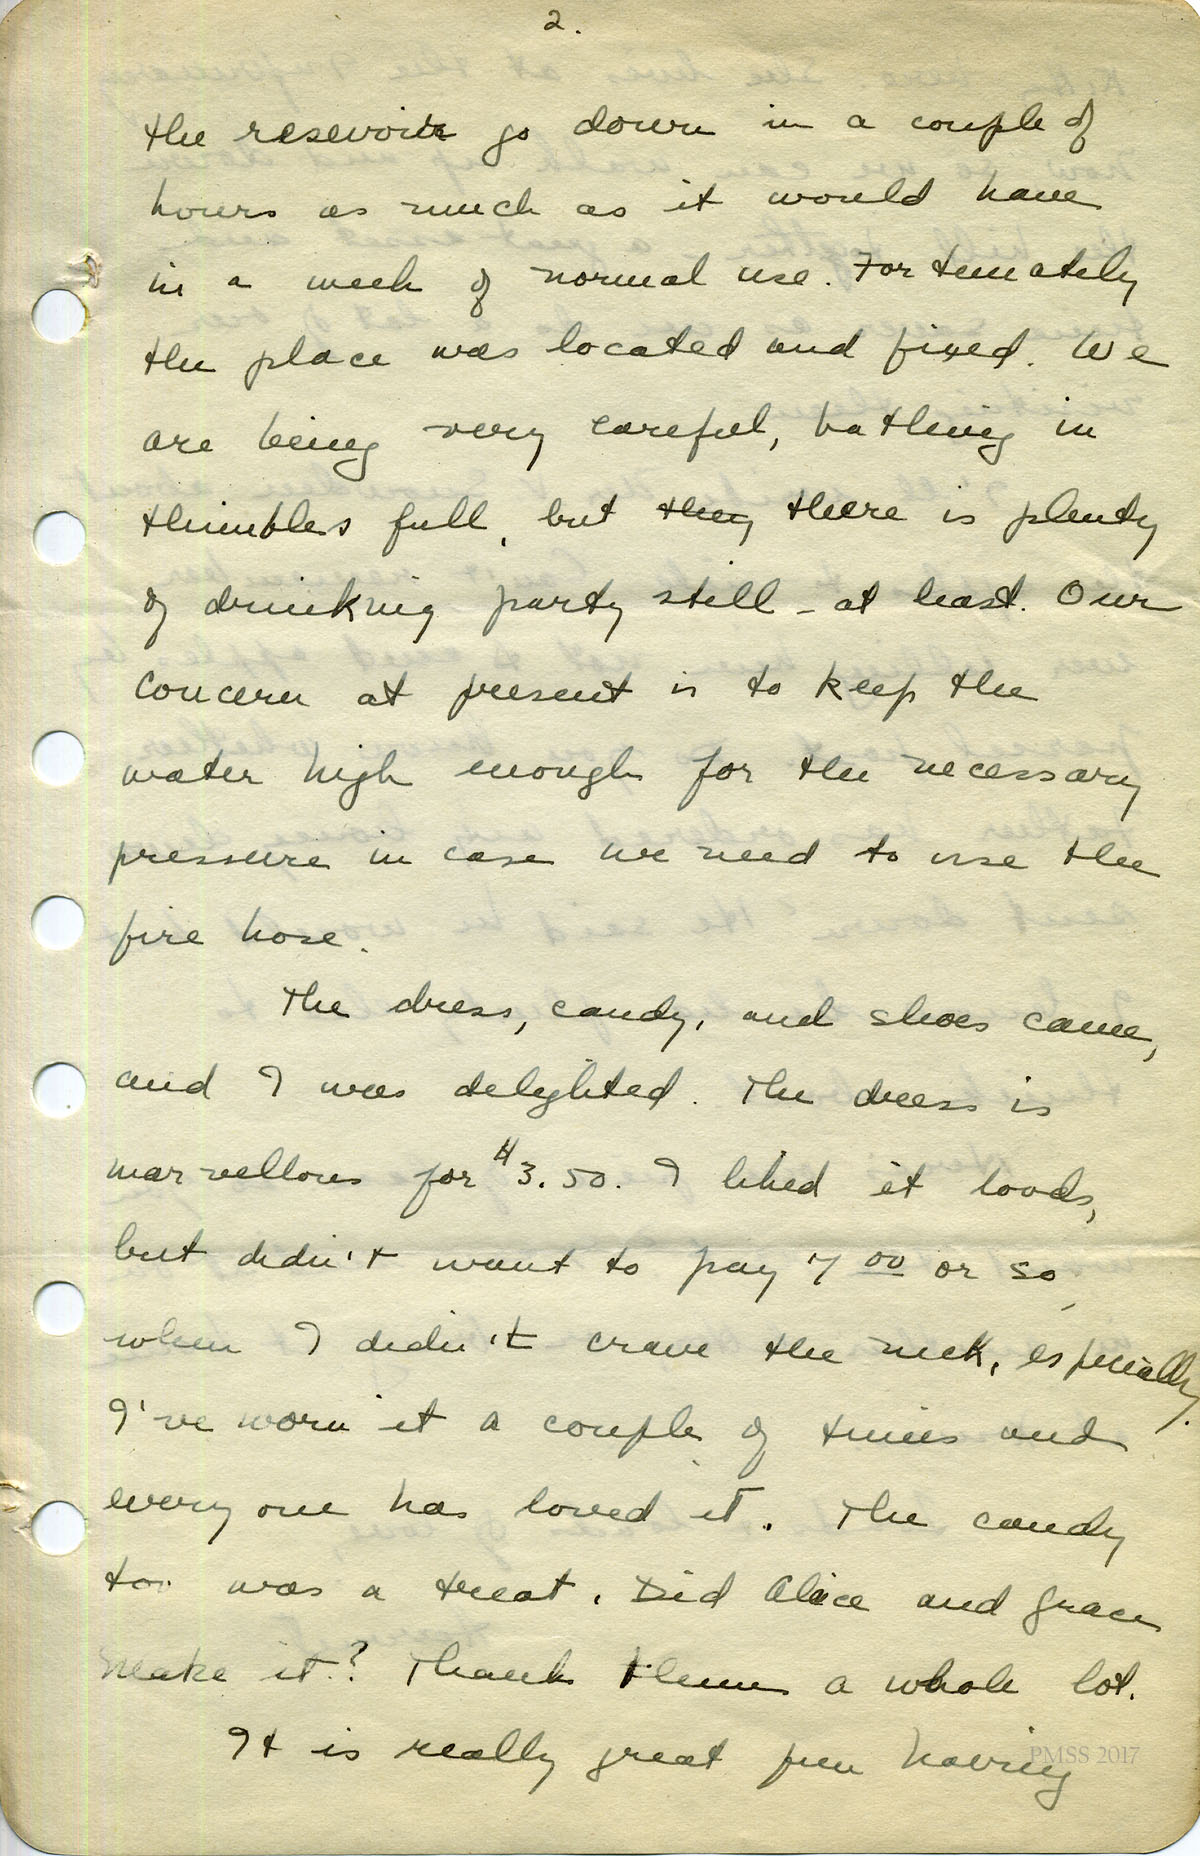 2.
the resevoir go down in a couple of
hours as much as it would have
in a week of normal use. Fortunately
the place was located and fixed. We
are being very careful, bathing in
thimbles full, but they there is plenty
of drinking party still - at least. Our
concern at present is to keep the
water high enough for the necessary
pressure in case we need to use the
fire hose.
The dress, candy, and shoes came,
and I was delighted. The dress is
marvellous for $3.50. I liked it loads,
but didn't want to pay 7 00 or so,
when I didn't crave the neck, especially.
I've worn it a couple of times and
every one has loved it. The candy
too was a treat. Did Alice and Grace
make it? Thank them a whole lot.
It is really great fun having
PMSS 2017